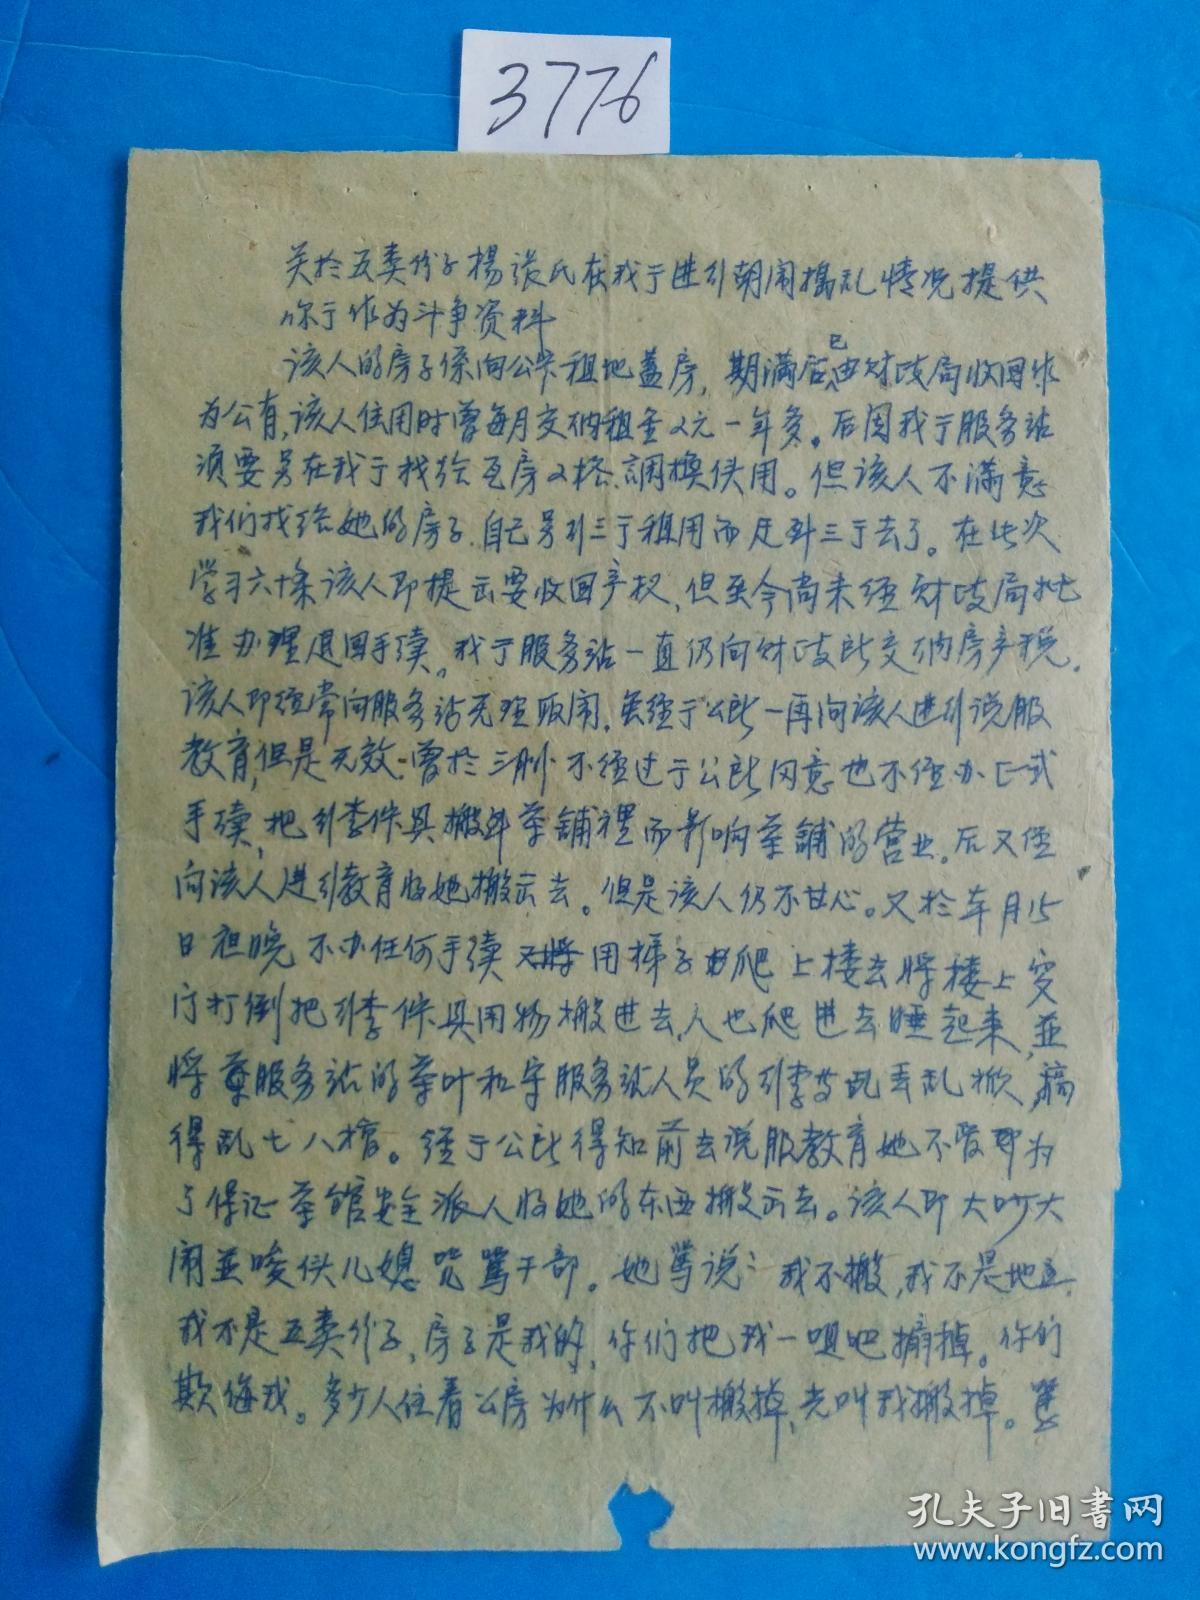 3776
关於五类份子楊張氏在我于进行胡闹搗乱情况提供
你于作为斗争资料
该人的房子係向公家租地蓋房，期满后已由财政局收回作
为公有，该人住用时曾每月交纳租金2元一年多。后因我于服务站
须要另在我于找给瓦房2格調換供用。但该人不满意
我们找给她的房子.自己另引三于租用而迁到三于去了。在此次
学习六十条该人即提出要收回产权，但至今尚未经财政局批
准办理退回手续。我于服务站一直仍向财政所交纳房产税.
该人即经常向服务站无理取闹.虽经于公所一再向该人进行说服
教育，但是无效.曾於三月 不经过于公所同意也不经办正式
手续，把行李傢具搬到茶舖裡而影响茶舖的营业.后又经
向该人进行教育将她搬出去。但是该人仍不甘心。又於本月15
日夜晚 不办任何手续 用梯子爬上楼去将楼上
门打倒把行李傢具用物搬进去，人也爬进去睡起来，並
将服务站的茶叶和守服务站人员的行李乱丢乱掀，搞
得乱七八糟。经于公所得知前去说服教育她不受即为
了保证茶馆安全派人将她的东西搬出去。该人即大吵大
闹並唆使儿媳咒骂干部。她骂说：我不搬，我不是地主.
我不是五类份子，房子是我的，你们把我一咀吧搧掉。你们
欺侮我。多少人住着公房为什么不叫搬掉，光叫我搬掉。
孔夫子旧书网
www.kongfz.com